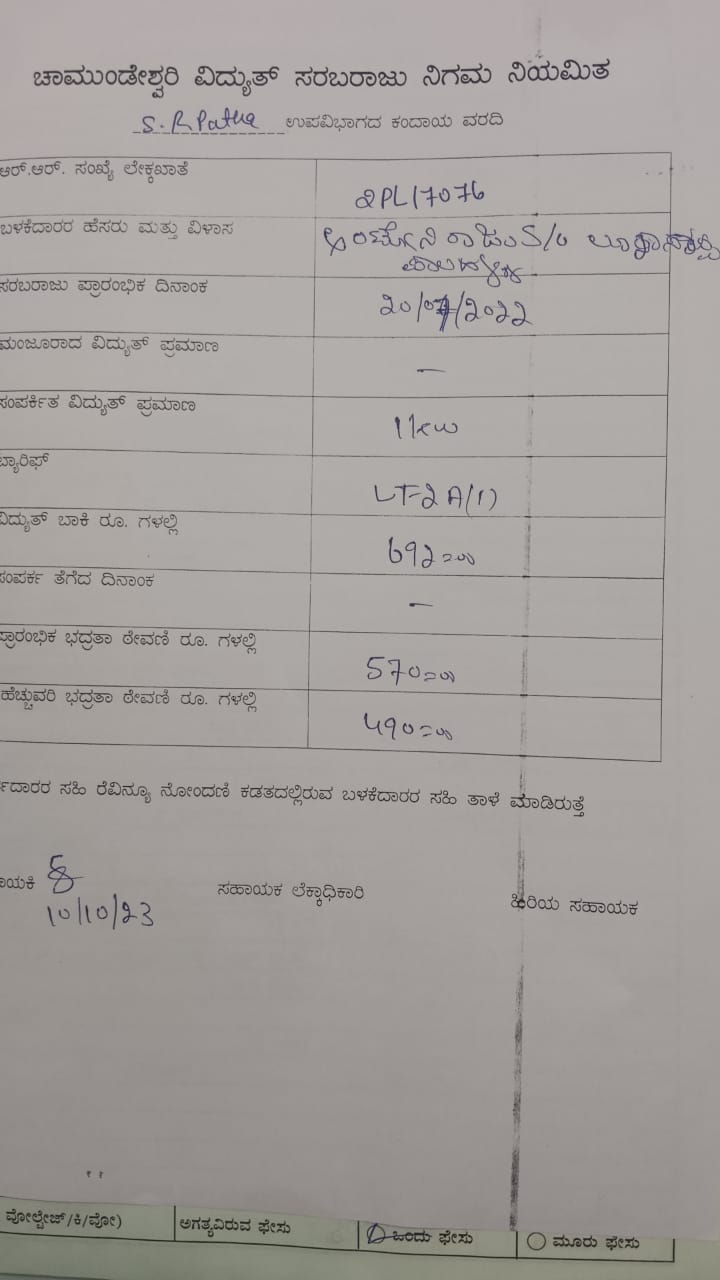 ಚಾಮುಂಡೇಶ್ವರಿ ವಿದ್ಯುತ್ ಸರಬರಾಜು ನಿಗಮ ನಿಯಮಿತ
S.R Patna ಉಪವಿಭಾಗದ ಕಂದಾಯ ವರದಿ
ಆರ್.ಆರ್. ಸಂಖ್ಯೆ ಲೇಕ್ಕಖಾತೆ 2PL17076
ಬಳಕೆದಾರರ ಹೆಸರು ಮತ್ತು ವಿಳಾಸ S/o
ಸರಬರಾಜು ಪ್ರಾರಂಭಿಕ ದಿನಾಂಕ 20/07/2022
ಮಂಜೂರಾದ ವಿದ್ಯುತ್ ಪ್ರಮಾಣ —
ಸಂಪರ್ಕಿತ ವಿದ್ಯುತ್ ಪ್ರಮಾಣ 1 kw
ಟ್ಯಾರಿಫ್ LT-2 A(1)
ವಿದ್ಯುತ್ ಬಾಕಿ ರೂ. ಗಳಲ್ಲಿ 692=00
ಸಂಪರ್ಕ ತೆಗೆದ ದಿನಾಂಕ —
ಪ್ರಾರಂಭಿಕ ಭದ್ರತಾ ಠೇವಣಿ ರೂ. ಗಳಲ್ಲಿ 570=00
ಹೆಚ್ಚುವರಿ ಭದ್ರತಾ ಠೇವಣಿ ರೂ. ಗಳಲ್ಲಿ 490=00
ಸಹಿ ರೆವಿನ್ಯೂ ನೋಂದಣಿ ಕಡತದಲ್ಲಿರುವ ಬಳಕೆದಾರರ ಸಹಿ ತಾಳೆ ಮಾಡಿರುತ್ತೆ
ಸಹಾಯಕ ಲೆಕ್ಕಾಧಿಕಾರಿ ಹಿರಿಯ ಸಹಾಯಕ
10/10/23
ವೋಲ್ಟೇಜ್/ಕಿ/ವೋ) ಅಗತ್ಯವಿರುವ ಫೇಸು ಒಂದು ಫೇಸು ಮೂರು ಫೇಸು